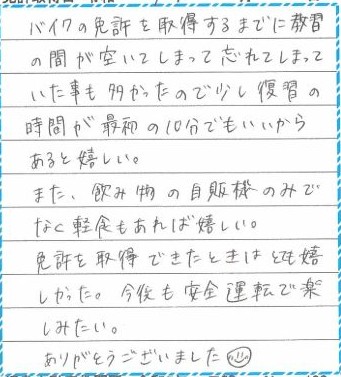 バイクの免許を取得するまでに教習
の間が空いてしまって忘れてしまって
いた事も多かったので少し復習の
時間が最初の10分でもいいから
あると嬉しい。
また、飲み物の自販機のみで
なく軽食もあれば嬉しい。
免許を取得できたときはとても嬉
しかった。今後も安全運転で楽
しみたい。
ありがとうございました